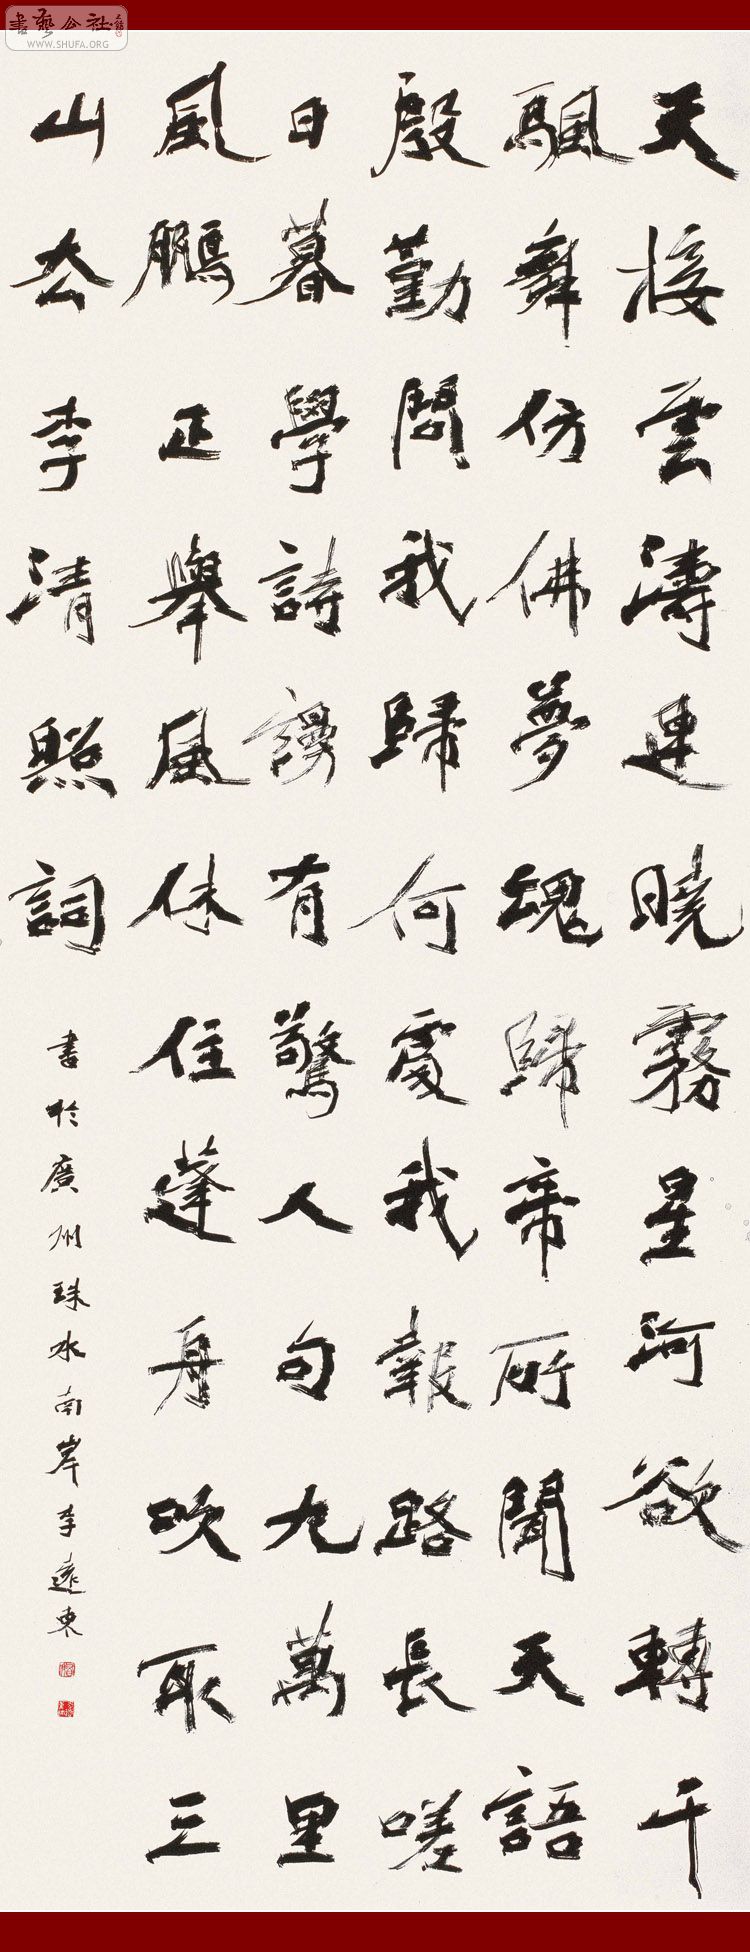 天接雲濤連曉霧星河欲轉千
颿舞仿佛夢魂歸帝所聞天語
殷勤問我歸何處我報路長嗟
日暮學詩謾有驚人句九萬里
風鵬正舉風休住蓬舟吹取三
山去李清照詞
書於廣州珠水南岸李遠東
書藝公社
WWW.SHUFA.ORG